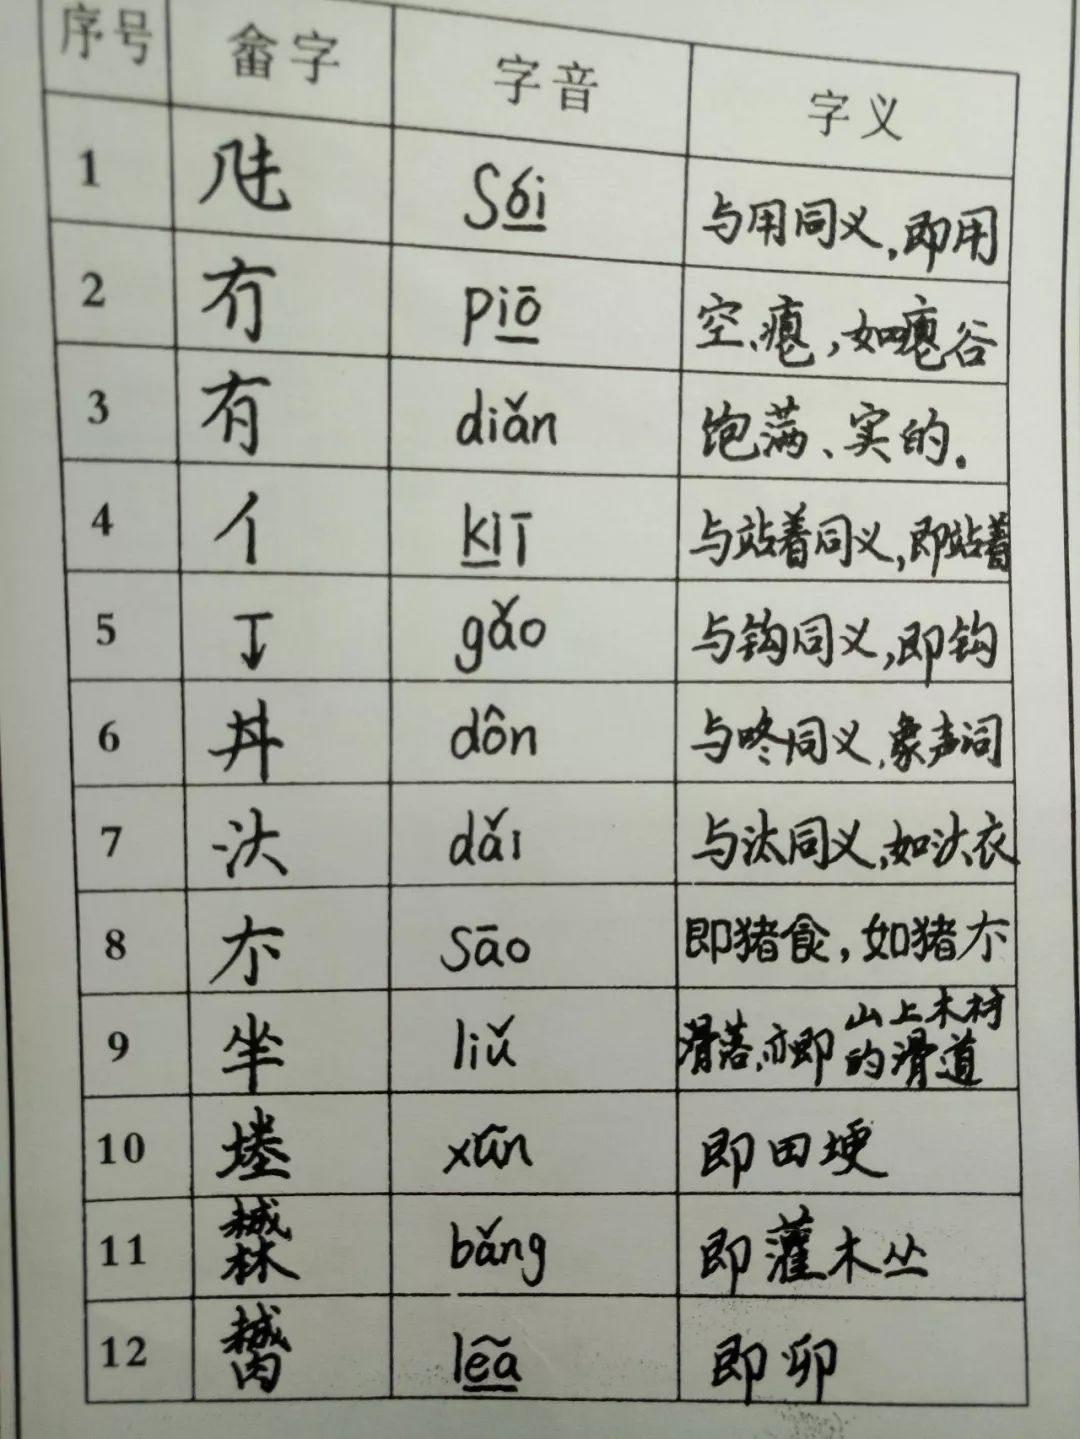 序号 畲字 字音 字义
1 sói 与用同义,即用
2 冇 piō 空、瘪,如瘪谷
3 有 diǎn 饱满、实的.
4 亻 kiī 与站着同义,即站着
5 gǎo 与钩同义,即钩
6 丼 dôn 与咚同义,象声词
7 汏 dǎi 与汰同义,如汏衣
8 sāo 即猪食,如猪
9 liǔ 滑落,亦即山上木材的滑道
10 xūn 即田埂
11 bǎng 即灌木丛
12 lẽã 即卵